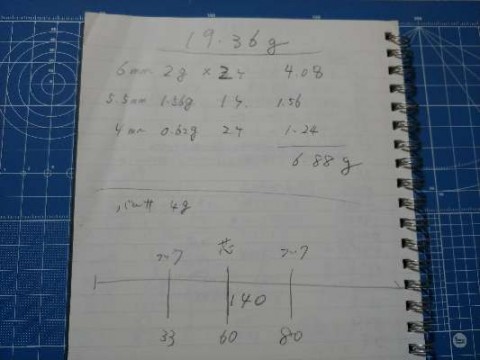 19.36g
6mm 2g × 2ヶ 4.08
5.5mm 1.56g 1ヶ 1.56
4mm 0.62g 2ヶ 1.24
6.88g
4g
芯
140
33 60 80